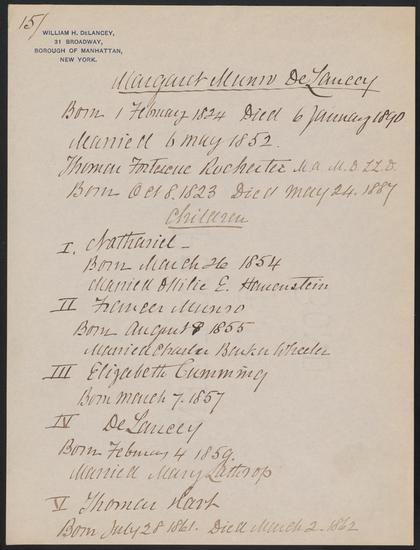 15/
WILLIAM H. DELANCEY,
31 BROADWAY,
BOROUGH OF MANHATTAN,
NEW YORK.
Margaret Munro DeLancey
Born 1 February 1824 Died 6 January 1890
Married 6 May 1852.
Thomas Fortescue Rochester M.A. M.D. LL.D.
Born Oct 8. 1823 Died May 24. 1887
Children
I. Nathaniel -
Born March 26 1854
Married Ottilie E.
II Frances Munro
Born August 8 1855
Married Charles Barker Wheeler
III Elizabeth Cumming
Born March 7. 1857
IV DeLancey
Born February 4 1859.
Married Mary Lathrop
V Thomas Hart
Born July 28 1861. Died March 2. 1862